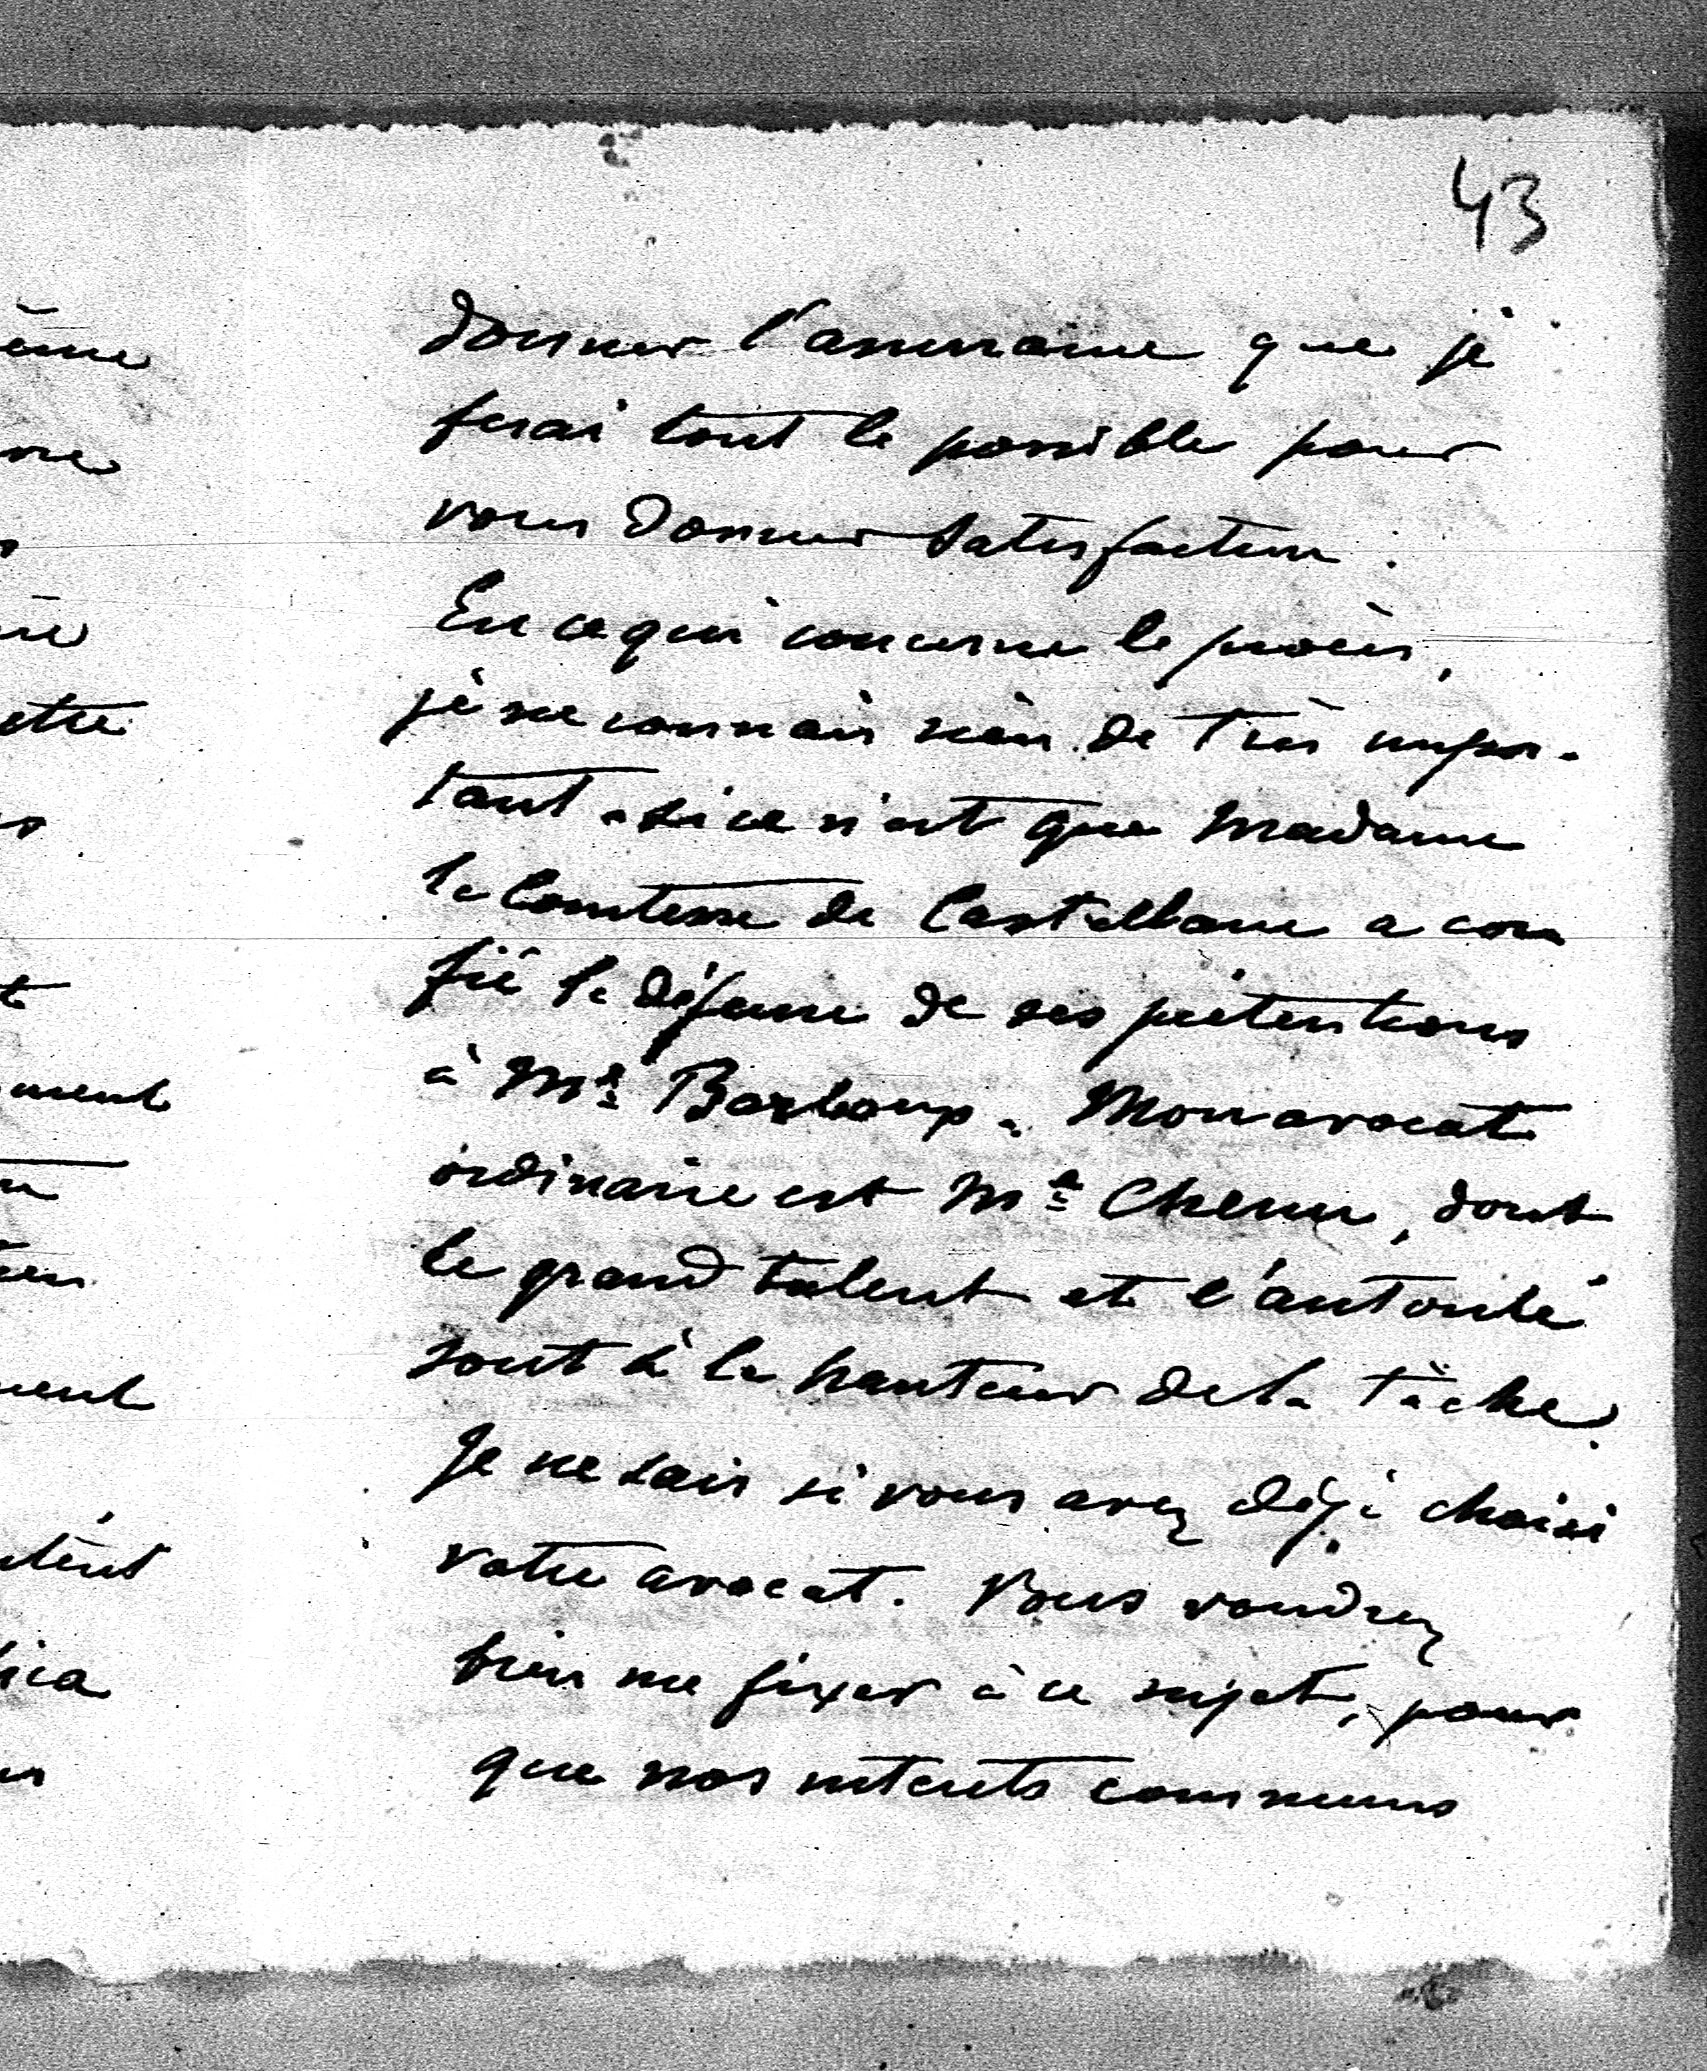 43
donner l'assurance que je
ferai tout le possible pour
vous donner satisfaction.
En ce qui concerne le procès,
je ne connais rien de très impor-
tant, si ce n'est que Madame
la Comtesse de Castellane a con
fié la défense de ses prétentions
à Me Barboux. Mon avocat
ordinaire est Me Chenu, dont
le grand talent et l'autorité
sont à la hauteur de la tâche.
Je ne sais si vous avez déjà choisi
votre avocat. Vous voudrez
bien me fixer à ce sujet, pour
que nos intérêts communs